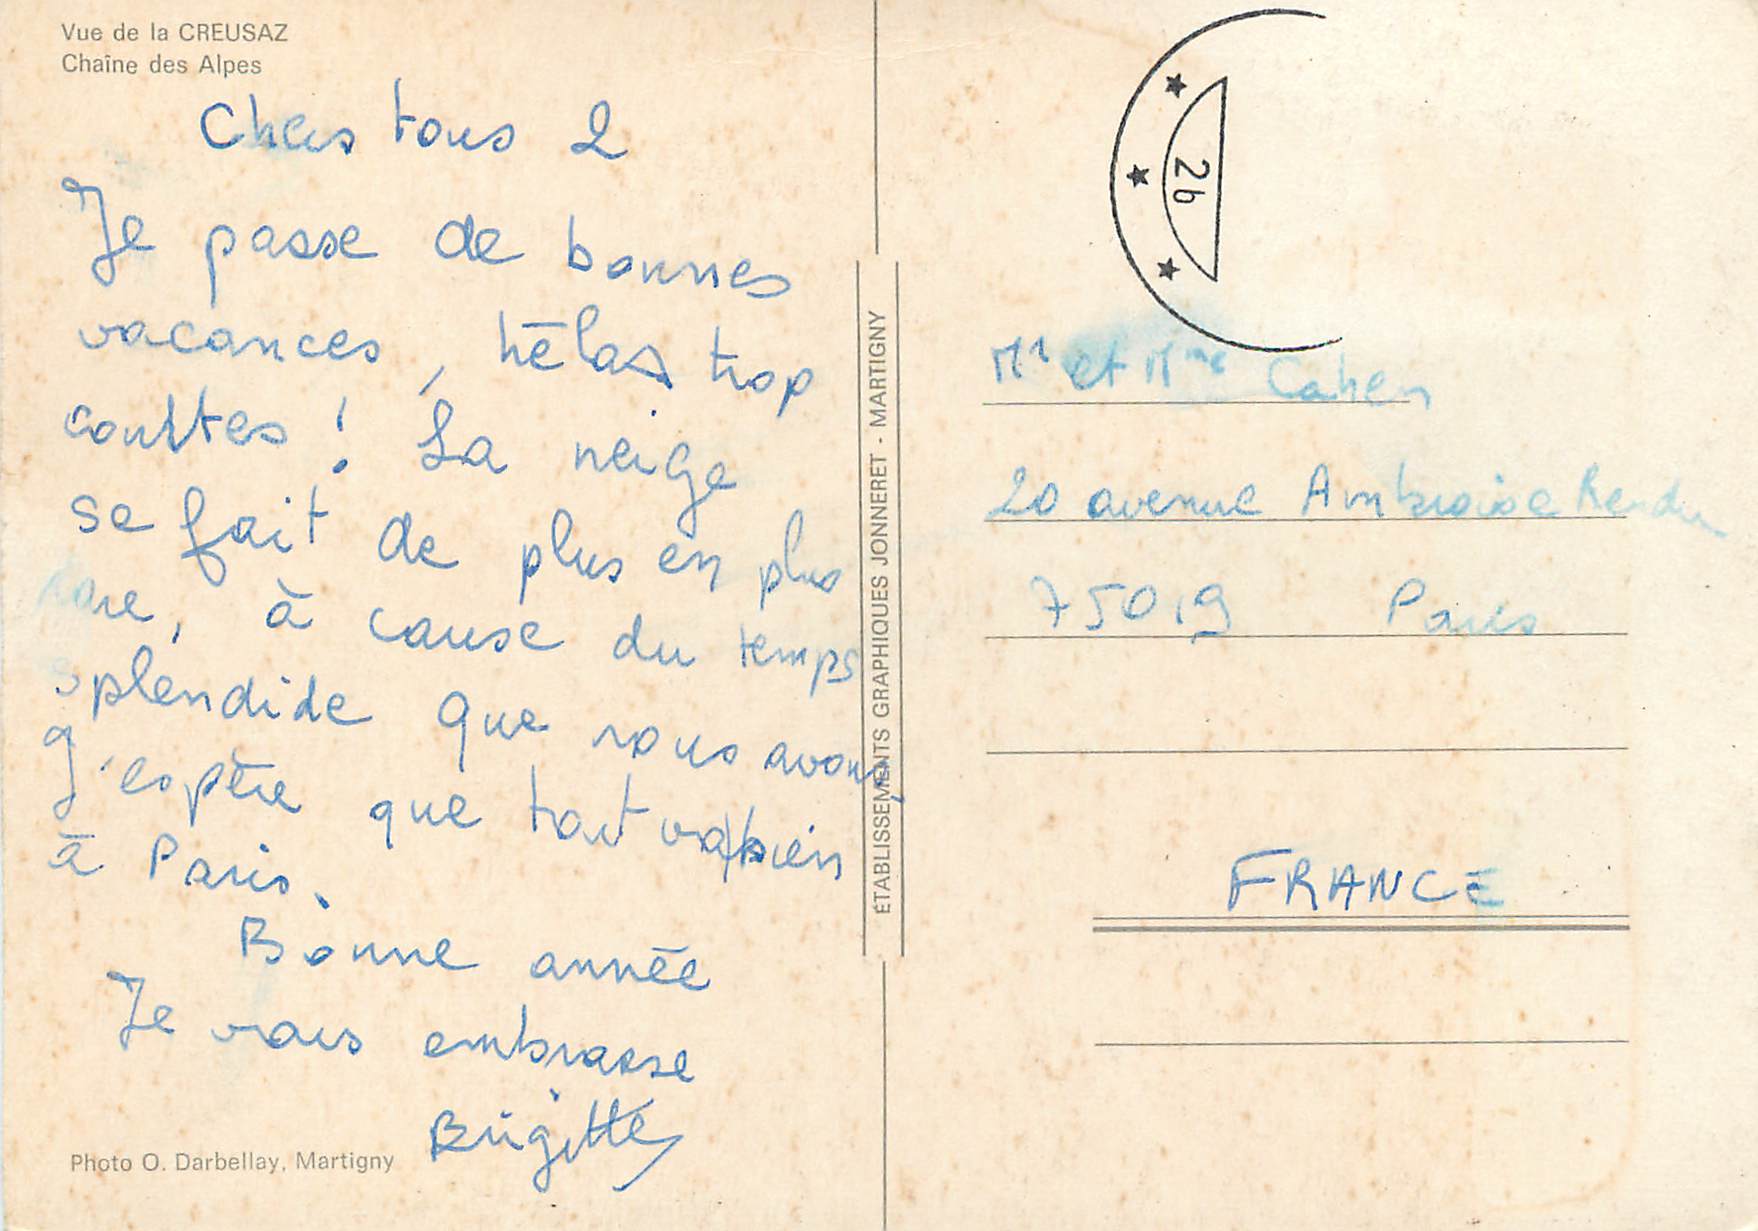 Vue de la CREUSAZ
Chaîne des Alpes
Chers tous 2
Je passe de bonnes
vacances, hélas trop
courtes ! La neige
se fait de plus en plus
rare, à cause du temps
splendide que nous avons,
J'espère que tout va bien
à Paris.
Bonne année
Je vous embrasse
Brigitte
Photo O. Darbellay, Martigny
ÉTABLISSEMENTS GRAPHIQUES JONNERET - MARTIGNY
2b
Mr et Mme Cahen
20 avenue Ambroise Rendu
75019 Paris
FRANCE